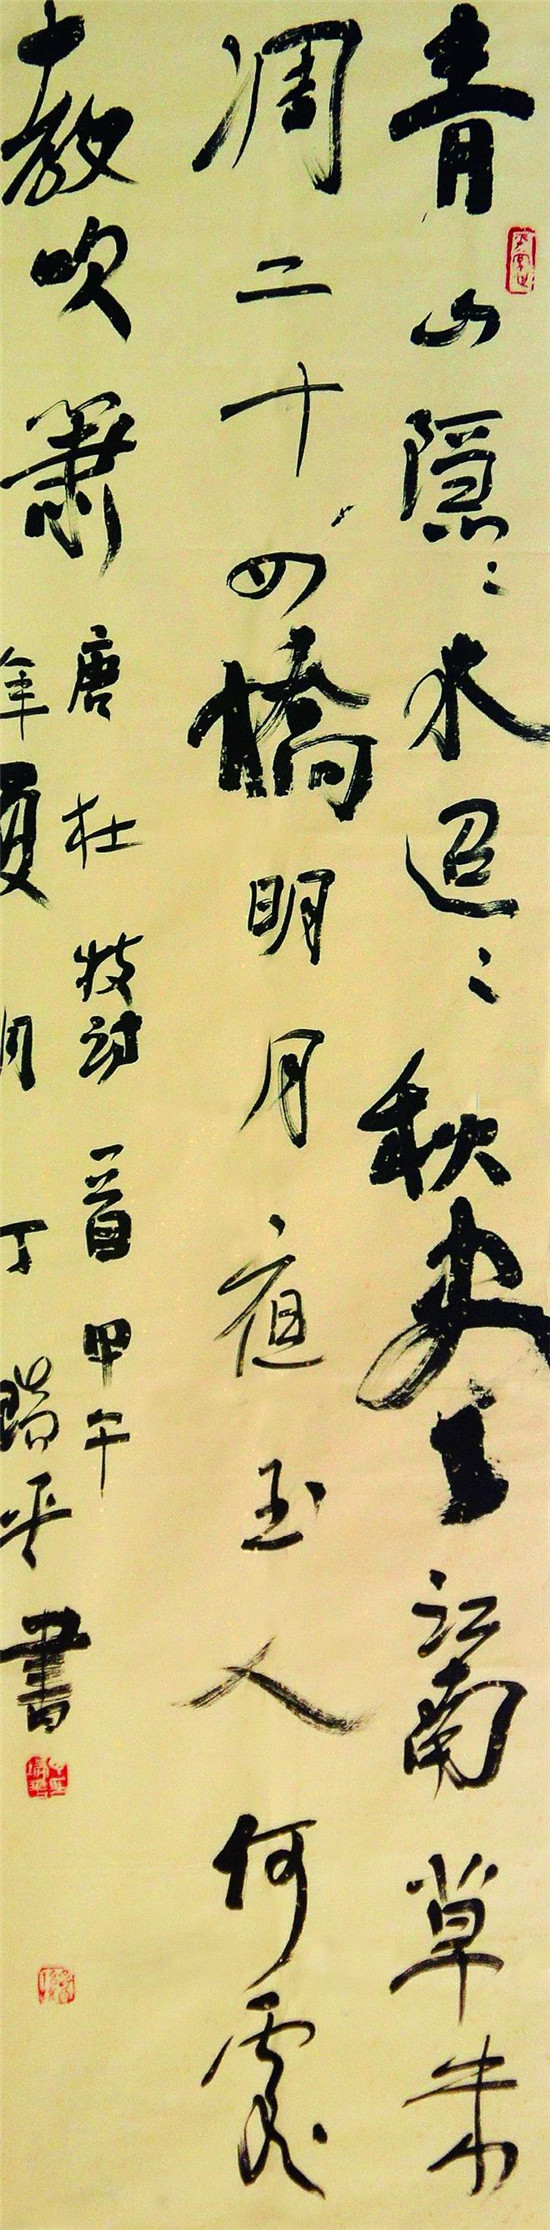 青山隱:水迢:秋尽江南草未
凋二十四橋明月夜玉人何處
教吹簫
唐杜牧詩一首甲午
年夏月丁瑞平書